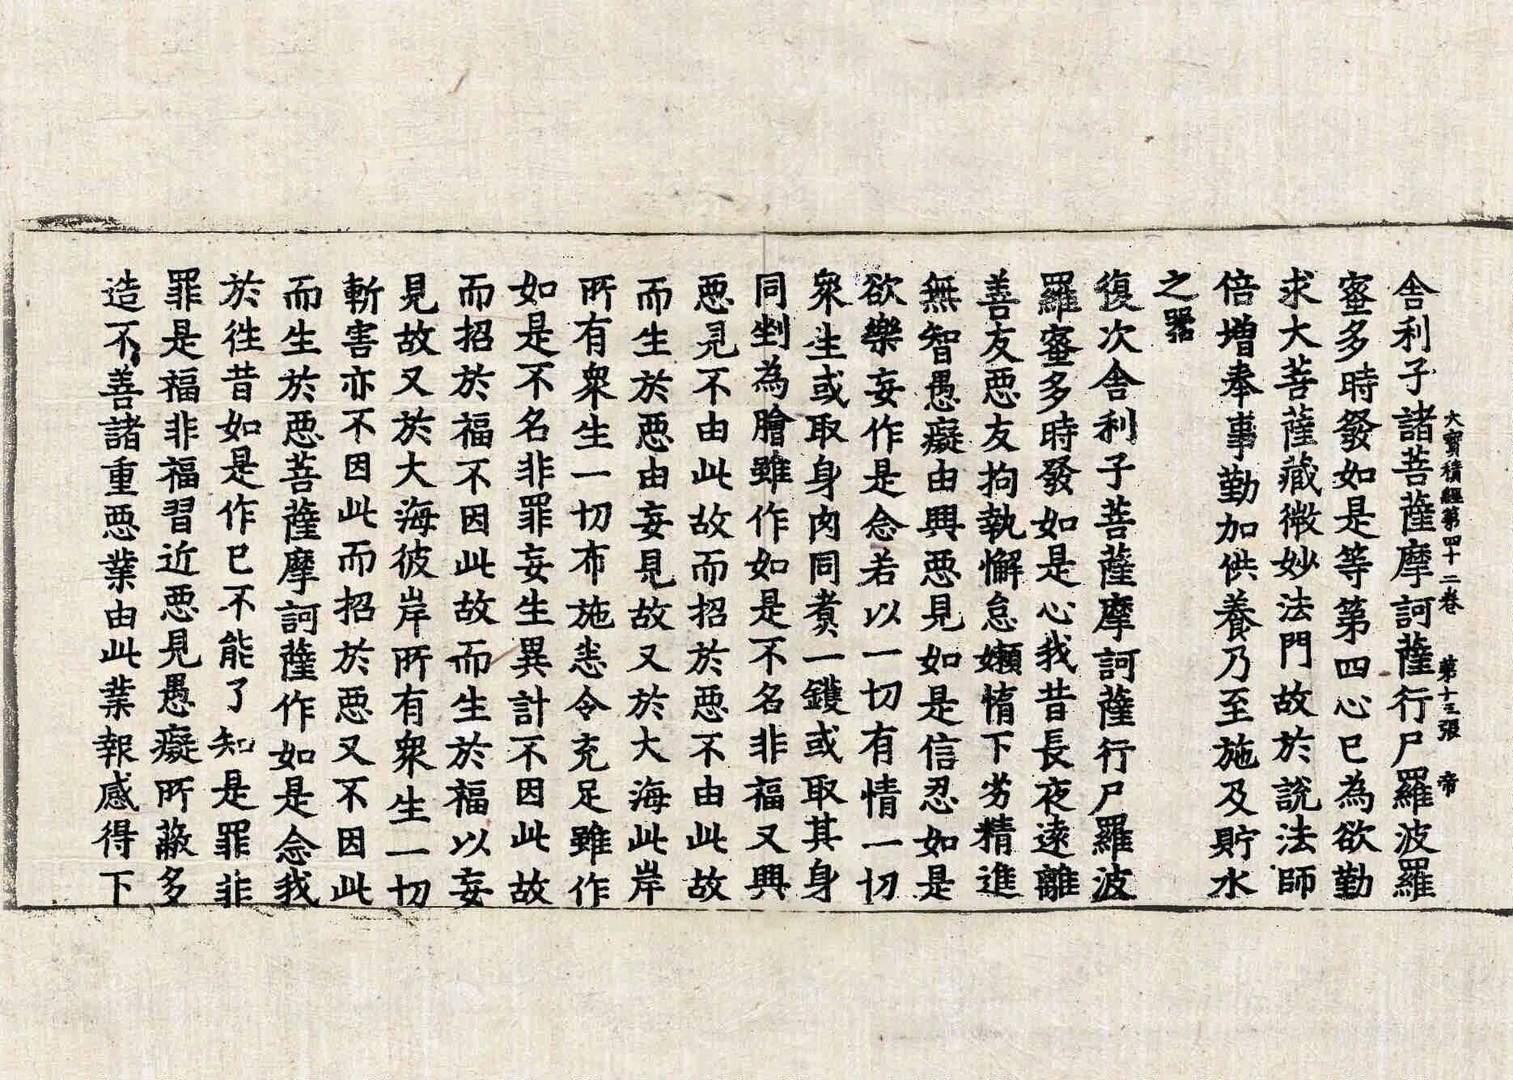 大寶積經第四十二卷 第十三張 帝
舍利子諸菩薩摩訶薩行尸羅波羅
蜜多時發如是等第四心已為欲勤
求大菩薩藏微妙法門故於說法師
倍增奉事勤加供養乃至施及貯水
之器
復次舍利子菩薩摩訶薩行尸羅波
羅蜜多時發如是心我昔長夜遠離
善友惡友拘執懈怠嬾惰下劣精進
無智愚癡由興惡見如是信忍如是
欲樂妄作是念若以一切有情一切
衆生或取身肉同煑一鑊或取其身
同剉為膾雖作如是不名非福又興
惡見不由此故而招於惡不由此故
而生於惡由妄見故又於大海此岸
所有衆生一切布施悉令充足雖作
如是不名非罪妄生異計不因此故
而招於福不因此故而生於福以妄
見故又於大海彼岸所有衆生一切
斬害亦不因此而招於惡又不因此
而生於惡菩薩摩訶薩作如是念我
於徃昔如是作已不能了知是罪非
罪是福非福習近惡見愚癡所蔽多
造不善諸重惡業由此業報感得下